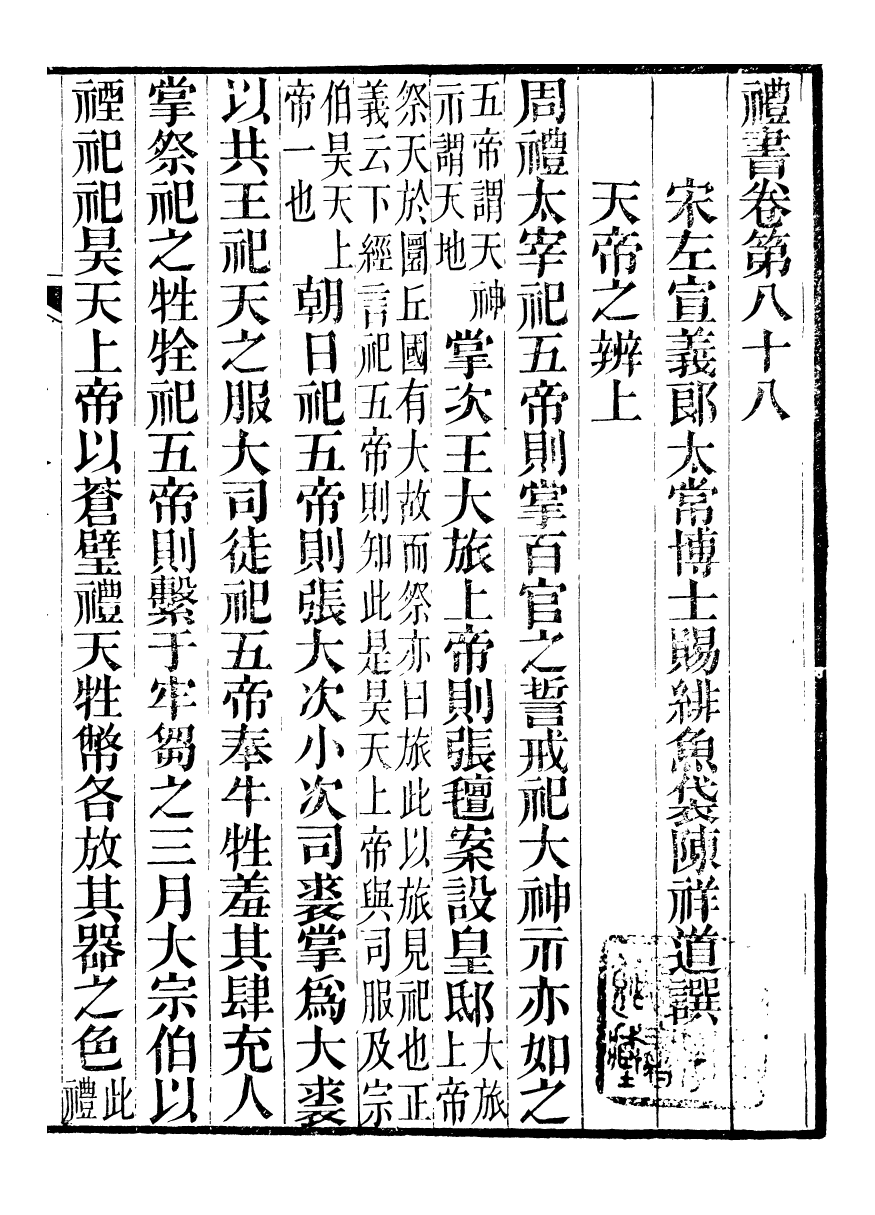 禮書卷第八十八
宋左宣義郎太常博士賜緋魚袋陳祥道譔
天帝之辨上
周禮太宰祀五帝則掌百官之誓戒祀大神示亦如之
五帝謂天神
示謂天地
掌次王大旅上帝則張氊案設皇邸
大旅
上帝
祭天於圜丘國有大故而祭亦曰旅此以旅見祀也正
義云下經言祀五帝則知此是昊天上帝與司服及宗
伯昊天上
帝一也
朝日祀五帝則張大次小次司裘掌爲大裘
以共王祀天之服大司徒祀五帝奉牛牲羞其肆充人
掌祭祀之牲牷祀五帝則繫于牢芻之三月大宗伯以
禋祀祀昊天上帝以蒼璧禮天牲幣各放其器之色
此
禮